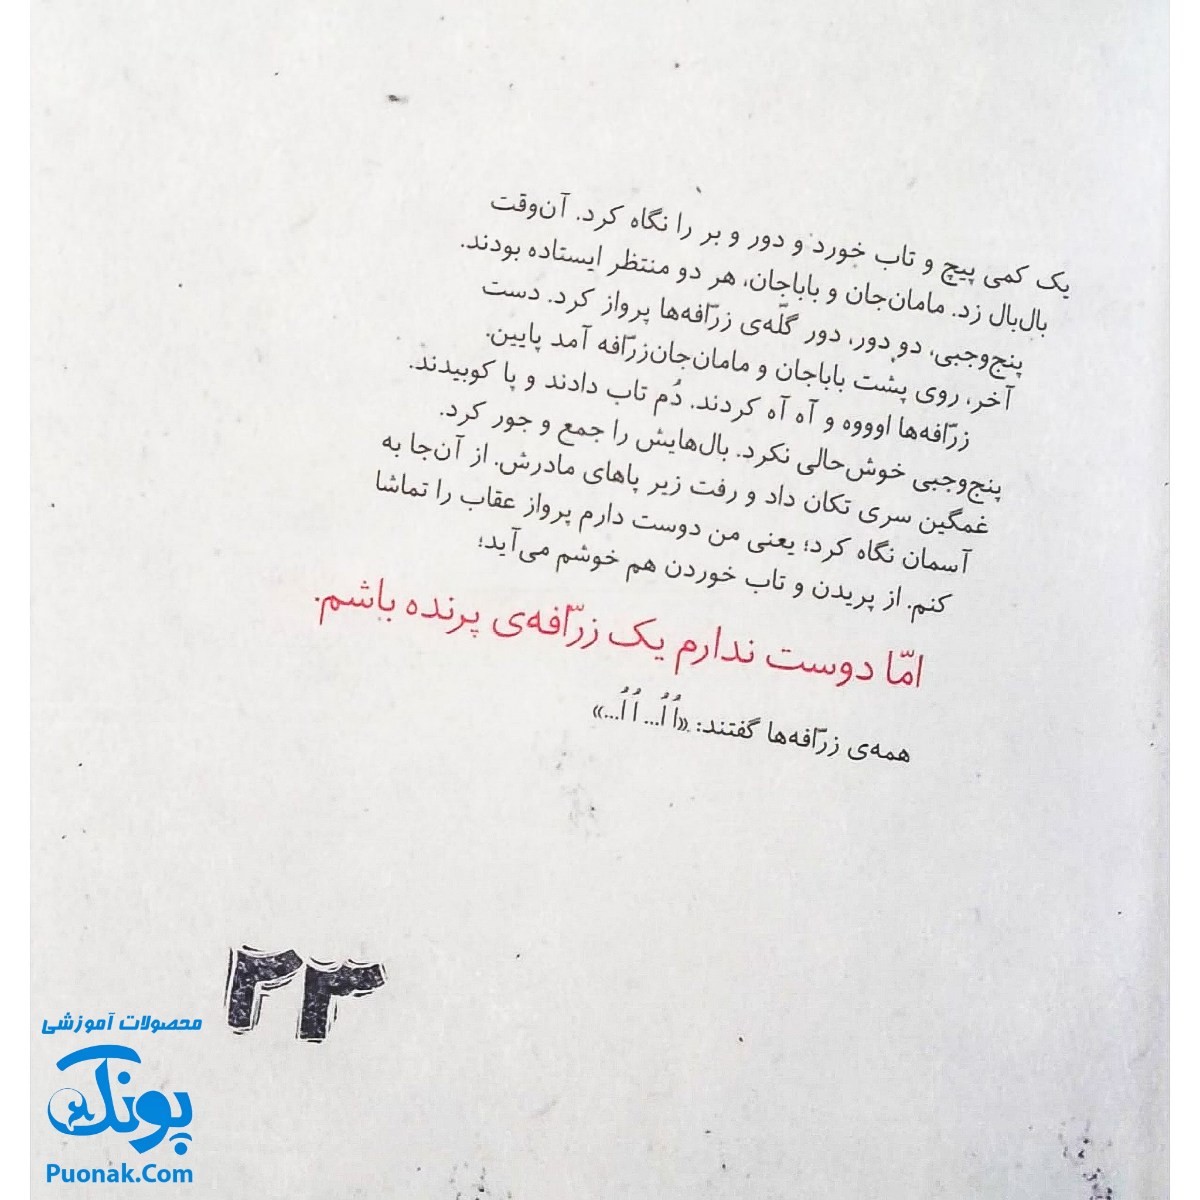 یک کمی پیچ و تاب خورد و دور و بر را نگاه کرد. آن‌وقت
بال‌بال زد. مامان‌جان و باباجان، هر دو منتظر ایستاده بودند.
پنج‌وجبی، دو دور، دور گلّه‌ی زرّافه‌ها پرواز کرد. دست
آخر، روی پشت باباجان و مامان‌جان‌زرّافه آمد پایین.
زرّافه‌ها اوووه و آه آه کردند. دُم تاب دادند و پا کوبیدند.
پنج‌وجبی خوش‌حالی نکرد. بال‌هایش را جمع و جور کرد.
غمگین سری تکان داد و رفت زیر پاهای مادرش. از آن‌جا به
آسمان نگاه کرد؛ یعنی من دوست دارم پرواز عقاب را تماشا
کنم. از پریدن و تاب خوردن هم خوشم می‌آید؛
امّا دوست ندارم یک زرّافه‌ی پرنده باشم.
همه‌ی زرّافه‌ها گفتند: «اُ اُ... اُ اُ...»
۲۳
محصولات آموزشی
پونک
Puonak.Com